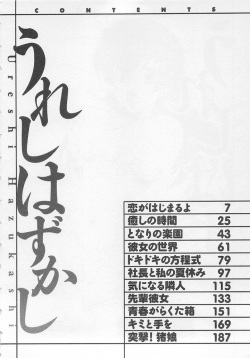 CONTENTS
うれしはずかし
Ureshi Hazukashi
恋がはじまるよ 7
癒しの時間 25
となりの楽園 43
彼女の世界 61
ドキドキの方程式 79
社長と私の夏休み 97
気になる隣人 115
先輩彼女 133
青春がらくた箱 151
キミと手を 169
突撃!猪娘 187